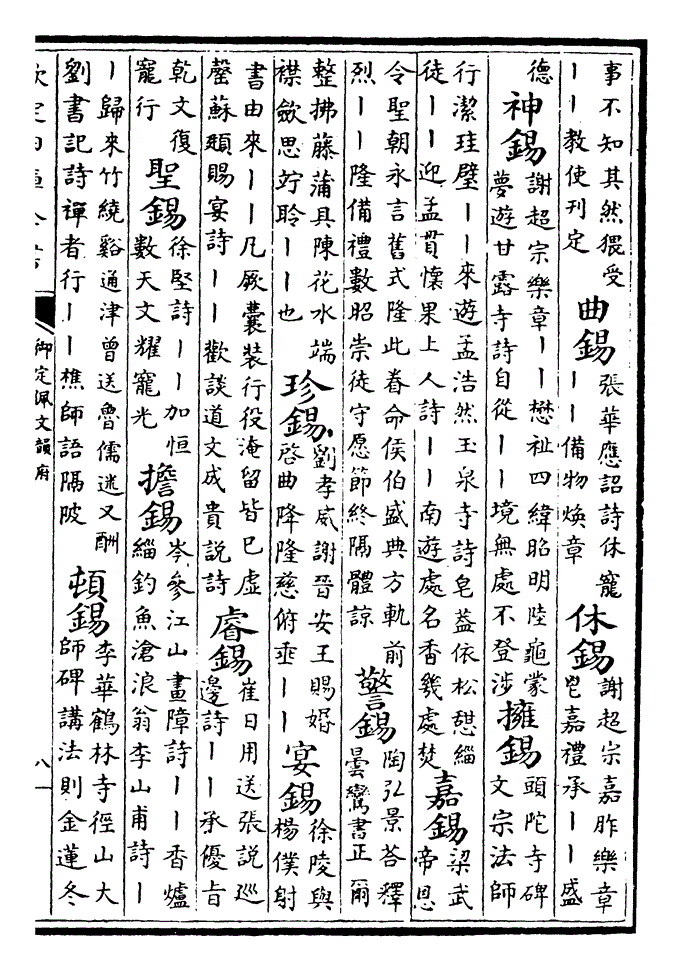 事不知其然猥受
〡〡教使刊定
曲錫
張華應詔詩休寵
〡〡備物煥章
休錫
謝超宗嘉胙樂章
鬯嘉禮承〡〡盛
德
神錫
謝超宗樂章〡〡懋祉四緯昭明陸龜蒙
夢遊甘露寺詩自從〡〡境無處不登涉
擁錫
頭陀寺碑
文宗法師
行潔珪璧〡〡來遊孟浩然玉泉寺詩皂葢依松憇緇
徒〡〡迎孟貫懷果上人詩〡〡南遊處名香幾處焚
嘉錫
梁武
帝恩
令聖朝永言舊式隆此眷命侯伯盛典方軌前
烈〡〡隆備禮數昭崇徒守愿節終隔體諒
警錫
陶弘景荅釋
曇鸞書正爾
整拂藤蒲具陳花水端
襟歛思竚聆〡〡也
珍錫
劉孝威謝晉安王賜婚
啓曲降隆慈俯垂〡〡
宴錫
徐陵與
楊僕射
書由來〡〡凡厥囊裝行役淹留皆已虛
罄蘇頲賜宴詩〡〡歡談道文成貴説詩
睿錫
崔日用送張説巡
邊詩〡〡承優㫖
乾文復
寵行
聖錫
徐堅詩〡〡加恒
數天文耀寵光
擔錫
岑參江山畫障詩〡〡香爐
緇釣魚滄浪翁李山甫詩〡
〡歸來竹繞谿通津曾送魯儒迷又酬
劉書記詩禪者行〡〡樵師語隔陂
頓錫
李華鶴林寺徑山大
師碑講法則金蓮冬
欽定四庫全書
御定佩文韻府
八一